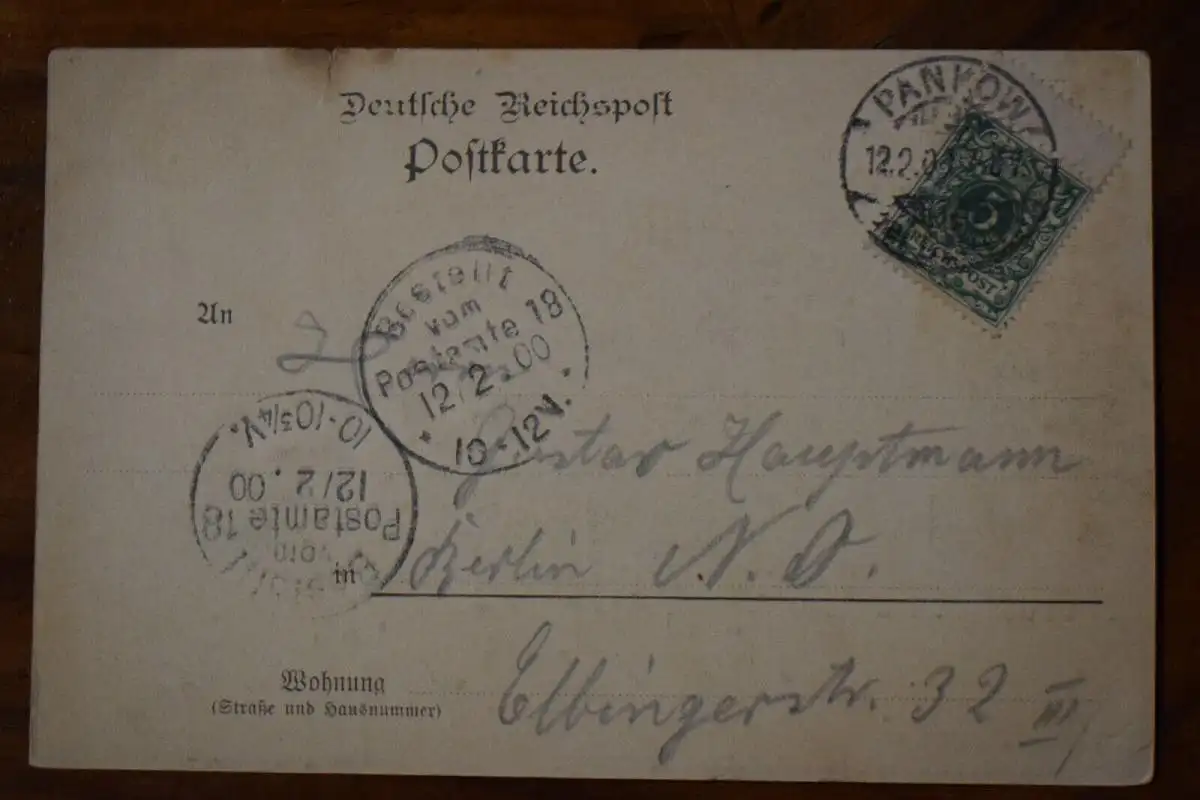 Deutsche Reichspost
Postkarte.
PANKOW
12.2.00
REICHSPOST
An
Bestellt
vom
Postamte 18
12/2.00
10-12V.
10-10¾V.
12/2.00
Postamte 18
vom
Gustav Hauptmann
in Berlin N. O.
Wohnung
(Straße und Hausnummer)
Elbingerstr. 32 III